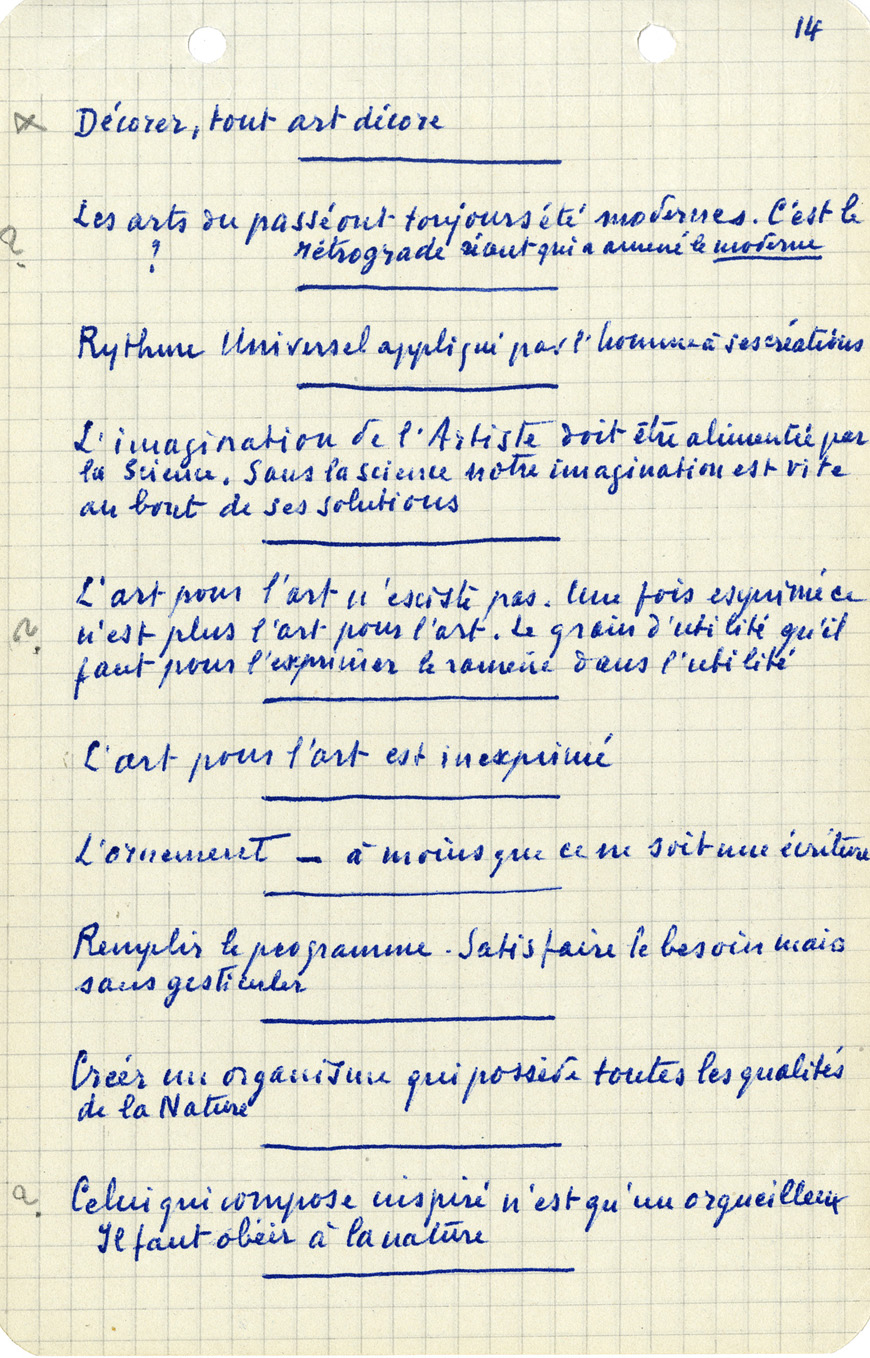 14
Décorer, tout art décore
Les arts du passé ont toujours été modernes. C'est le
? rétrograde qui a amené le moderne
Rythme Universel appliqué par l'homme à ses créations
L'imagination de l'Artiste doit être alimentée par
la Science. Sans la science notre imagination est vite
au bout de ses solutions
L'art pour l'art n'existe pas. Une fois exprimé ce
? n'est plus l'art pour l'art. Le grain d'utilité qu'il
faut pour l'exprimer le ramène dans l'utilité
L'art pour l'art est inexprimé
L'ornement — à moins que ce ne soit une écriture
Remplir le programme. Satisfaire le besoin mais
sans gesticuler
Créer un organisme qui possède toutes les qualités
de la Nature
? Celui qui compose inspiré n'est qu'un orgueilleux
Il faut obéir à la nature